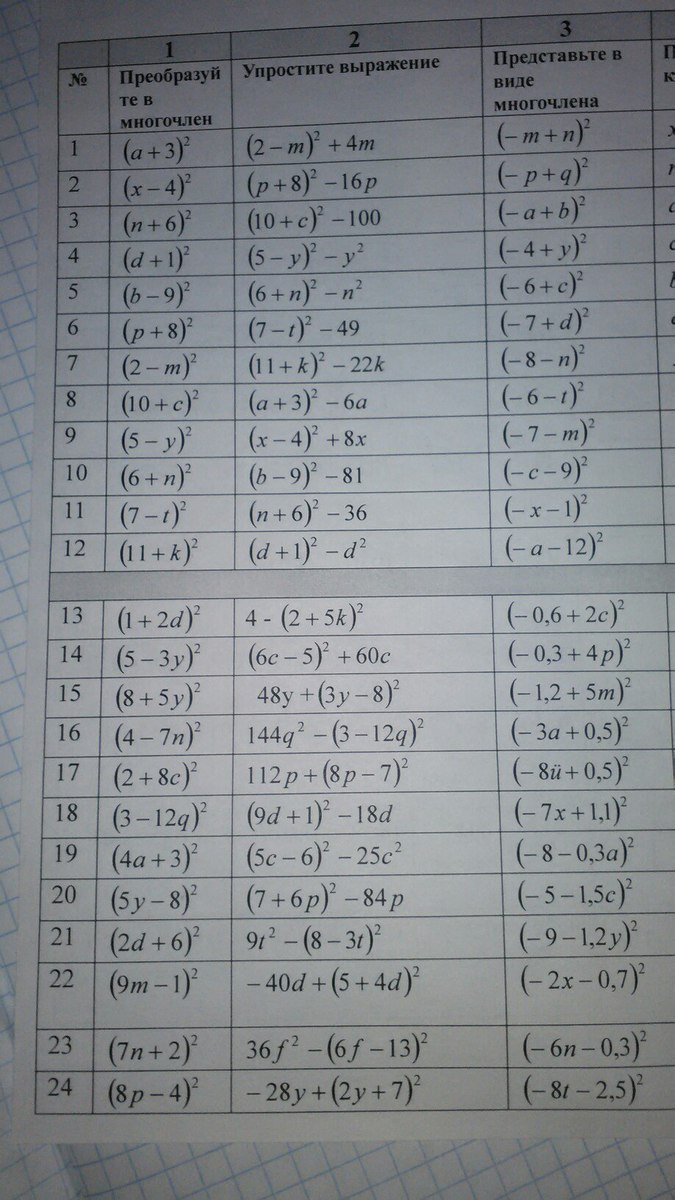 1 2 3
№ Преобразуй Упростите выражение Представьте в
те в виде
многочлен многочлена
1 (a+3)² (2−m)² + 4m (−m+n)²
2 (x−4)² (p+8)² −16p (−p+q)²
3 (n+6)² (10+c)² −100 (−a+b)²
4 (d+1)² (5−y)² − y² (−4+y)²
5 (b−9)² (6+n)² − n² (−6+c)²
6 (p+8)² (7−t)² − 49 (−7+d)²
7 (2−m)² (11+k)² −22k (−8−n)²
8 (10+c)² (a+3)² −6a (−6−t)²
9 (5−y)² (x−4)² +8x (−7−m)²
10 (6+n)² (b−9)² −81 (−c−9)²
11 (7−t)² (n+6)² −36 (−x−1)²
12 (11+k)² (d+1)² −d² (−a−12)²
13 (1+2d)² 4 - (2+5k)² (−0,6+2c)²
14 (5−3y)² (6c−5)² +60c (−0,3+4p)²
15 (8+5y)² 48y +(3y−8)² (−1,2+5m)²
16 (4−7n)² 144q² −(3−12q)² (−3a+0,5)²
17 (2+8c)² 112p+(8p−7)² (−8ü+0,5)²
18 (3−12q)² (9d+1)² −18d (−7x+1,1)²
19 (4a+3)² (5c−6)² −25c² (−8−0,3a)²
20 (5y−8)² (7+6p)² −84p (−5−1,5c)²
21 (2d+6)² 9t² −(8−3t)² (−9−1,2y)²
22 (9m−1)² −40d+(5+4d)² (−2x−0,7)²
23 (7n+2)² 36f² −(6f−13)² (−6n−0,3)²
24 (8p−4)² −28y+(2y+7)² (−8t−2,5)²